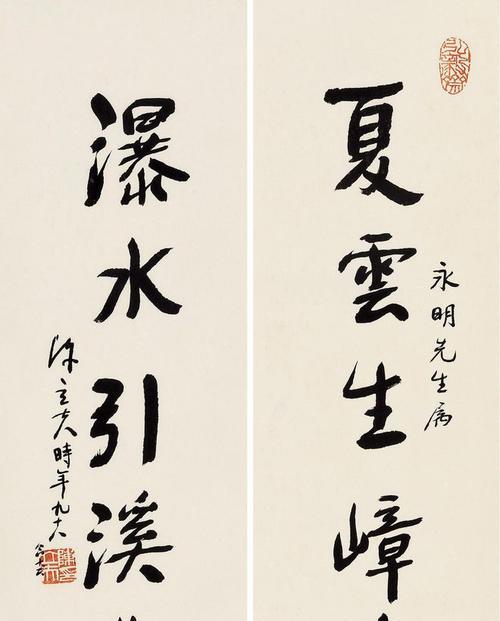 夏雲生嶂
永明先生屬
瀑水引溪
陳立夫時年九十八